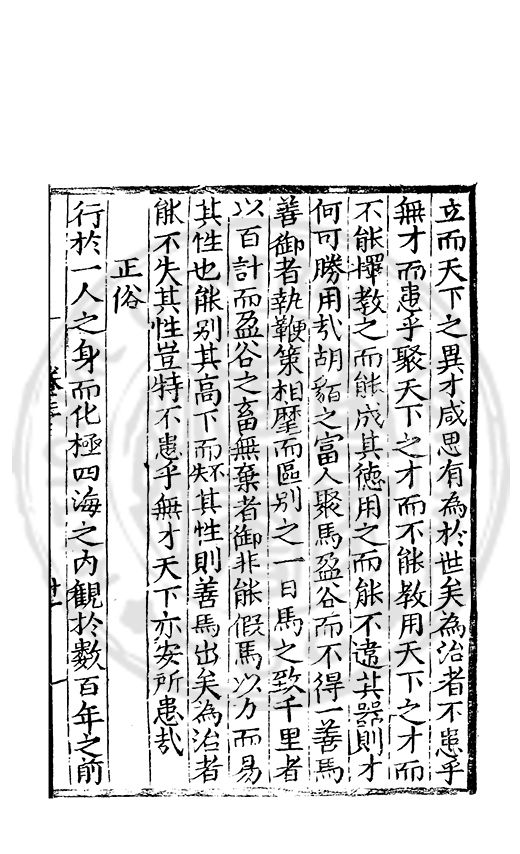 立而天下之異才咸思有為於世矣為治者不患乎
無才而患乎聚天下之才而不能教用天下之才而
不能擇教之而能成其徳用之而能不違其器則才
何可勝用㢤胡貊之富人聚馬盈谷而不得一善馬
善御者執鞭策相摩而區别之一日馬之致千里者
以百計而盈谷之畜無棄者御非能假馬以力而易
其性也能别其高下而不失其性則善馬出矣為治者
能不失其性豈特不患乎無才天下亦安所患㢤
正俗
行於一人之身而化極四海之内觀於數百年之前